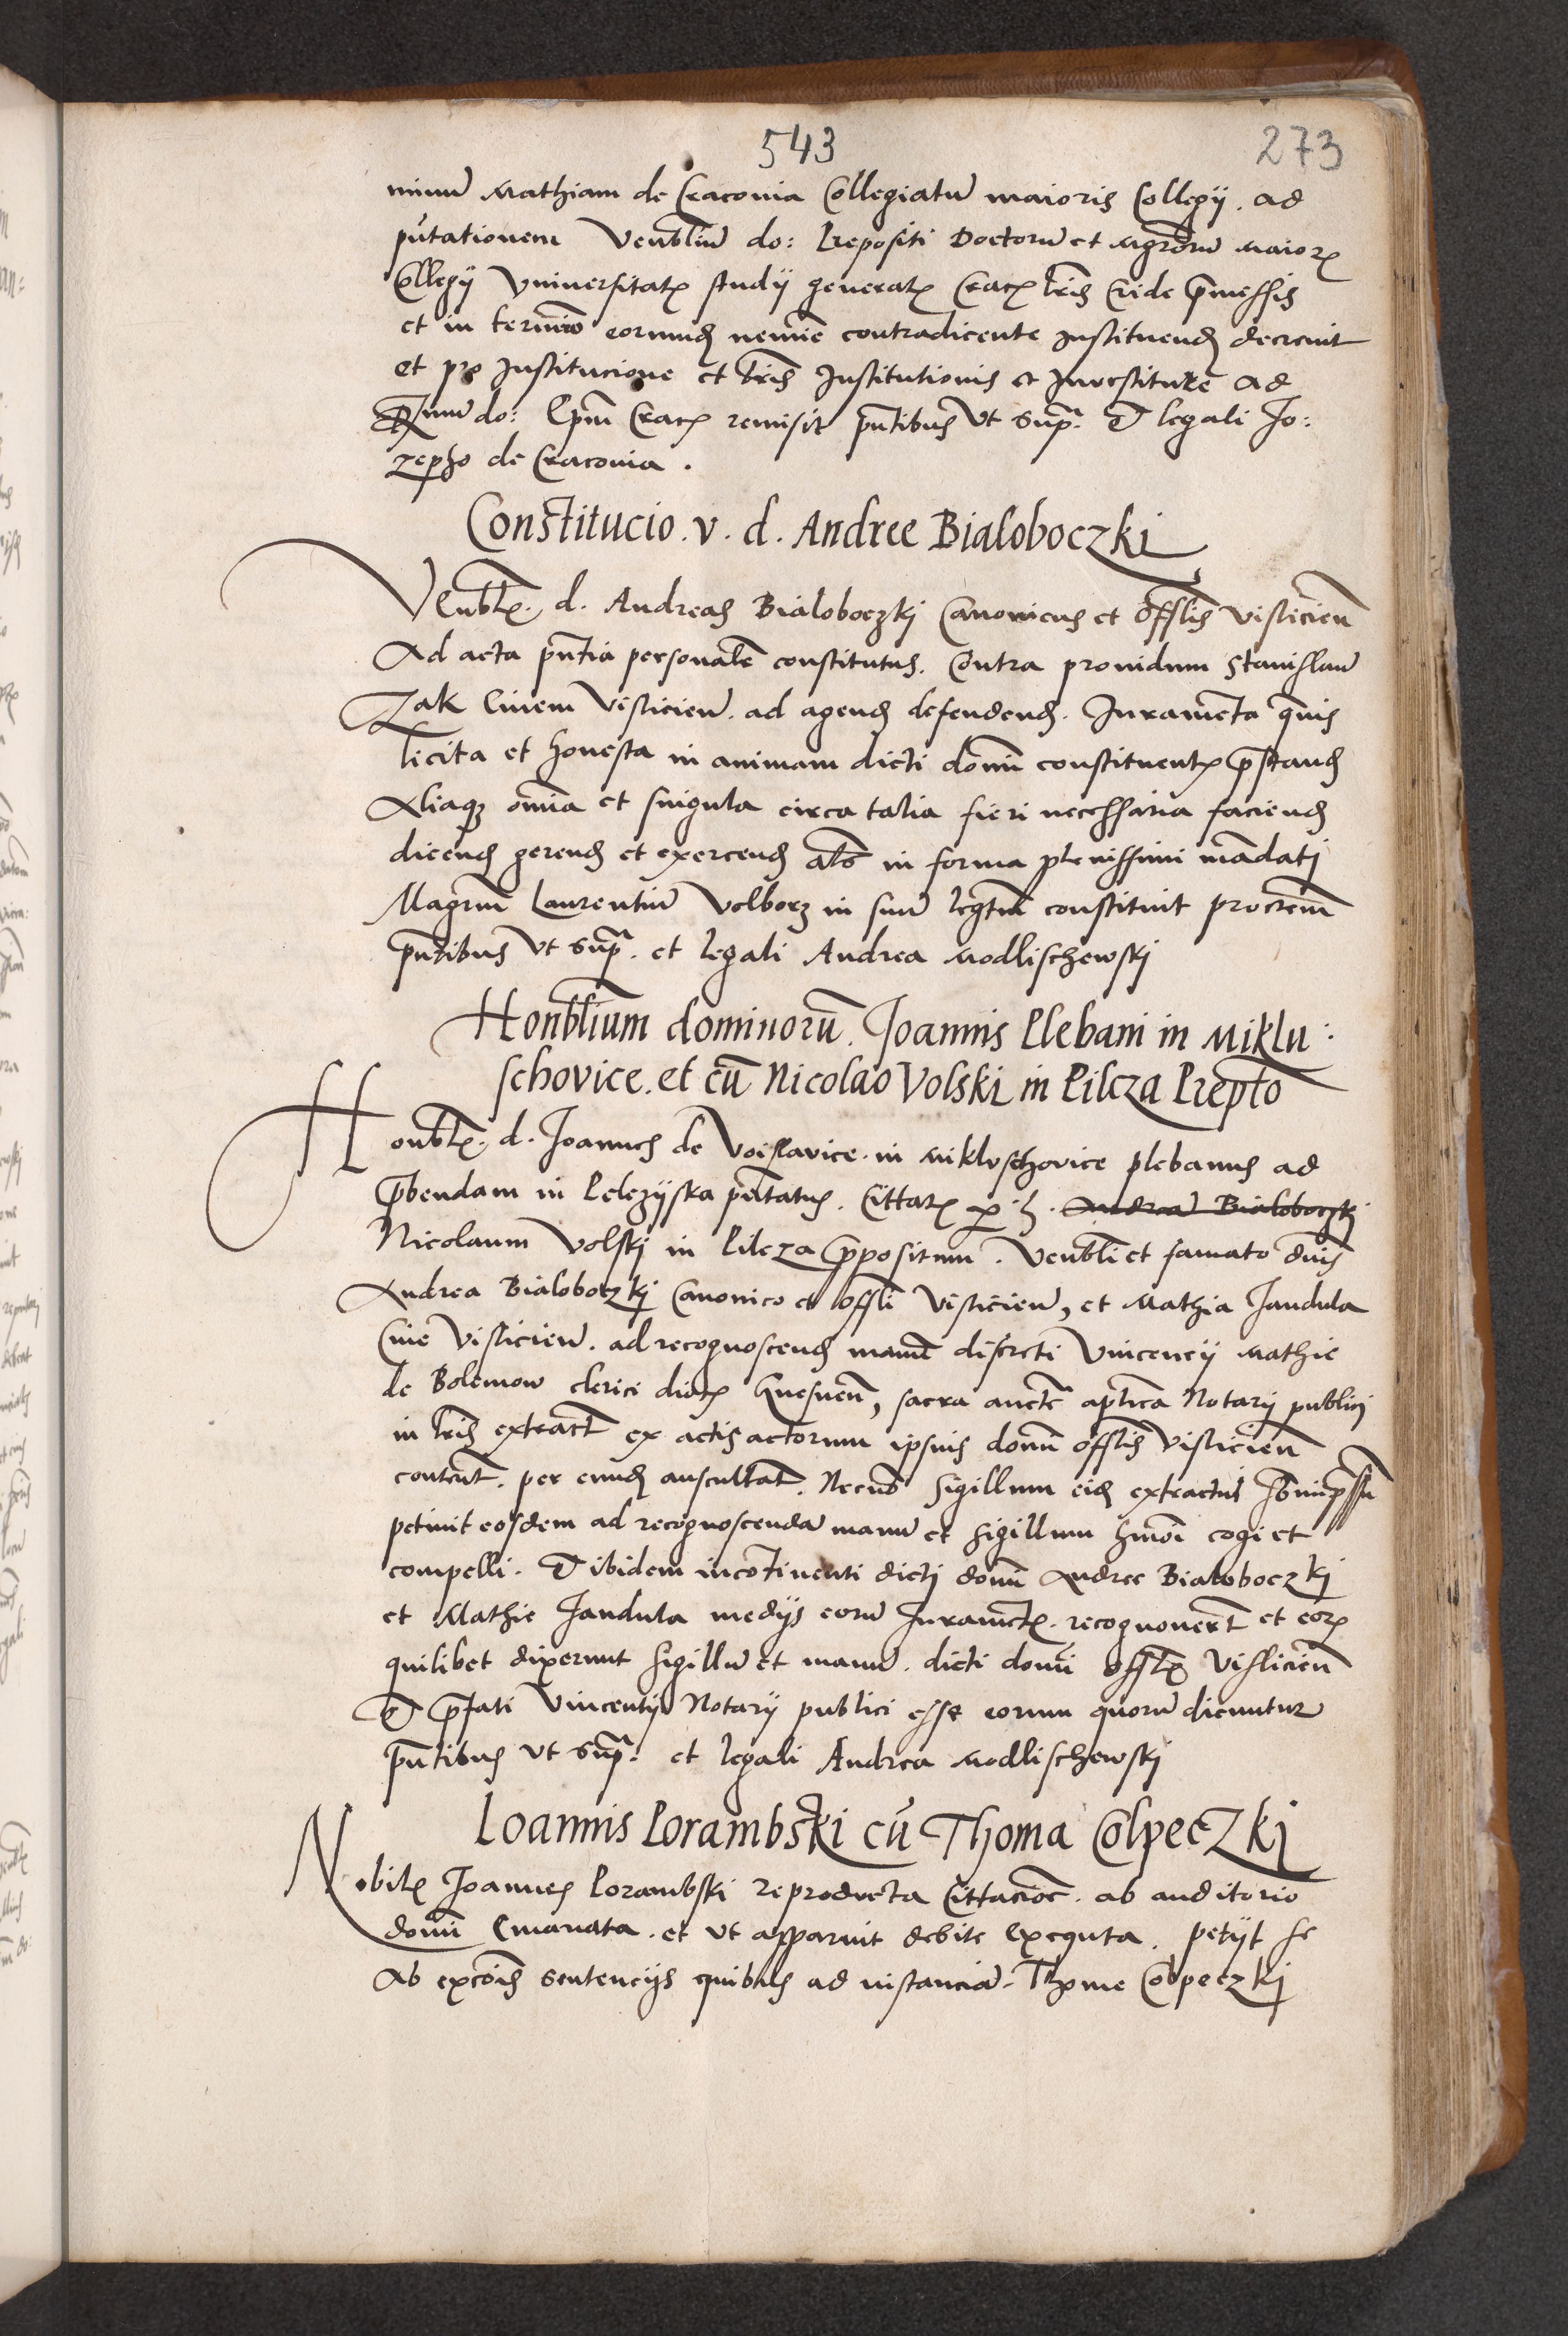 543
273
minū Mathiam de Cracovia Collegiatū maioris Collegij. ad
pūtationem Venbliū do: Prepositi Doctorū et Mgrorū Maior
Collegij Vniversitat studij generat Crac lris Cride p̄messis
et in termīo eorumd nemīe contradicente Instituend decrevit
et pro Institucione et lris Institutionis et Investiture ad
Rmū do: Epm Crac remisit pn̄tibus vt supra. Et legali Jo:
zepho de Cracovia.
Constitucio. v. d. Andree Bialoboczkj
Venbl. d. Andreas Bialoboczkj Canonicus et Offlis Visliciēn
Ad acta pn̄tia personalr constitutus. Contra providum Stanislaū
Zak Civem Visliciēn. ad agend defendend. Juramēta quis
licita et honesta in animam dicti domī constituent p̄stand
Aliaq omīa et singula circa talia fieri necessaria faciend
dicend gerend et exercend als in forma plenissimi mādatj
Magrm̄ Laurentiū Volborz in suū legtm̄ constituit procrem̄
pn̄tibus vt supra. et legali Andrea Modlischewskj
Honbliūm dominorū. Joannis Plebani in Miklu:
schovice. et cū Nicolao Volski in Pilcza Prepto
Honbl. d. Joannes de Voislavice. in Mikloschovice plebanus ad
p̄bendam in Pelczyska pn̄tatus. Cittat p h. Andreā Bialoboczkj
Nicolaum Volskj in Pilcza p̄positum. Venbli et famato dn̄is
Andrea Bialoboczkj Canonico et Offli Visliciēn, et Mathia Jandula
Cive Visliciēn. ad recognoscend manū discreti Vincencij Mathie
de Bolemow clerici dioc Gnesnēn, sacra aucte aptica Notarij publicj
in lris extract ex actis actorum ipsius domī Offlis Visliciēn
content. per eund auscultat. Necnō sigillum eid extractui
petivit eosdem ad recognoscendā manū et sigillum hmōi cogi et
compelli. Et ibidem incōtinenti dictj domī Andree Bialoboczkj
et Mathie Jandula medijs eorū Juramēt. recognoverūt et eor
quilibet dixerunt sigillū et manū. dicti domī Offl Visliciēn
Et p̄fati Vincentij Notarij publici esse eorum quorū dicuntur
pn̄tibus vt supra. et legali Andrea Modlischewskj
Ioannis Porambski cū Thoma ColpeczKj
Nobil Joannes Porambski reproducta Cittacioē. ab auditorio
domī Emanata. et vt apparuit debite exequta. petijt se
Ab excōis sentencijs quibus ad instanciā. Thome Colpeczkj